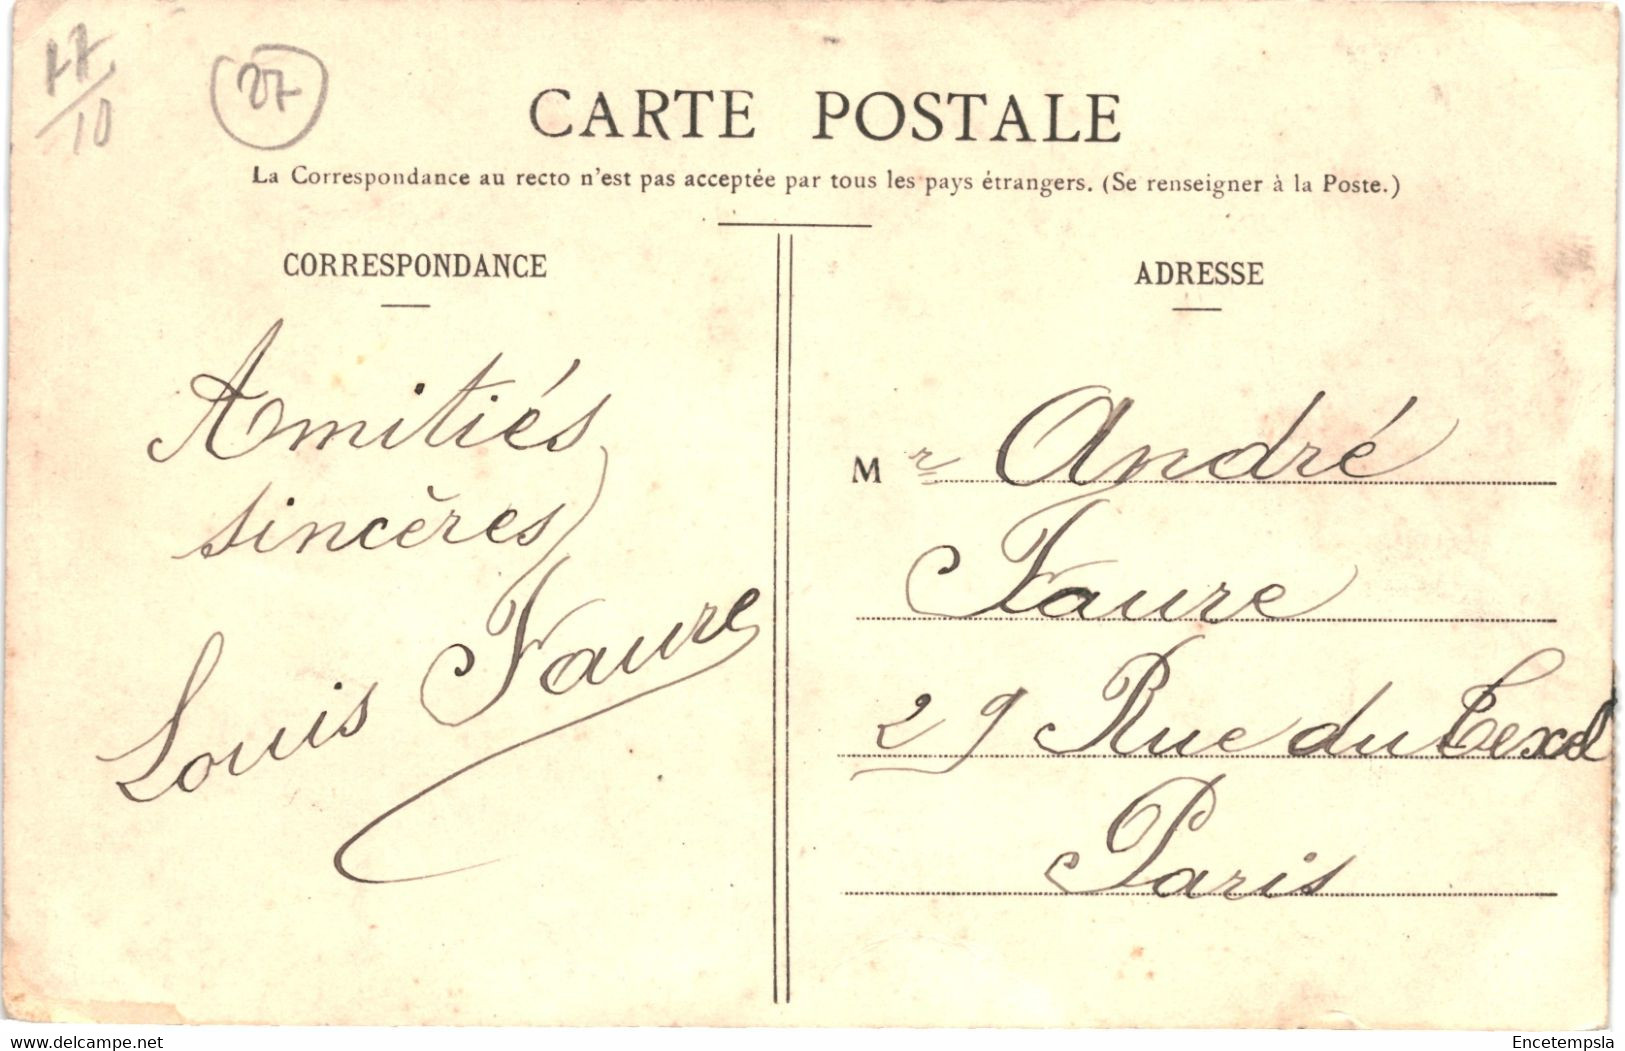 17/10
27
CARTE POSTALE
La Correspondance au recto n'est pas acceptée par tous les pays étrangers. (Se renseigner à la Poste.)
CORRESPONDANCE
Amitiés
sincères
Louis Faure
ADRESSE
Mr André
Faure
29 Rue du Texel
Paris
www.delcampe.net
Encetempsla